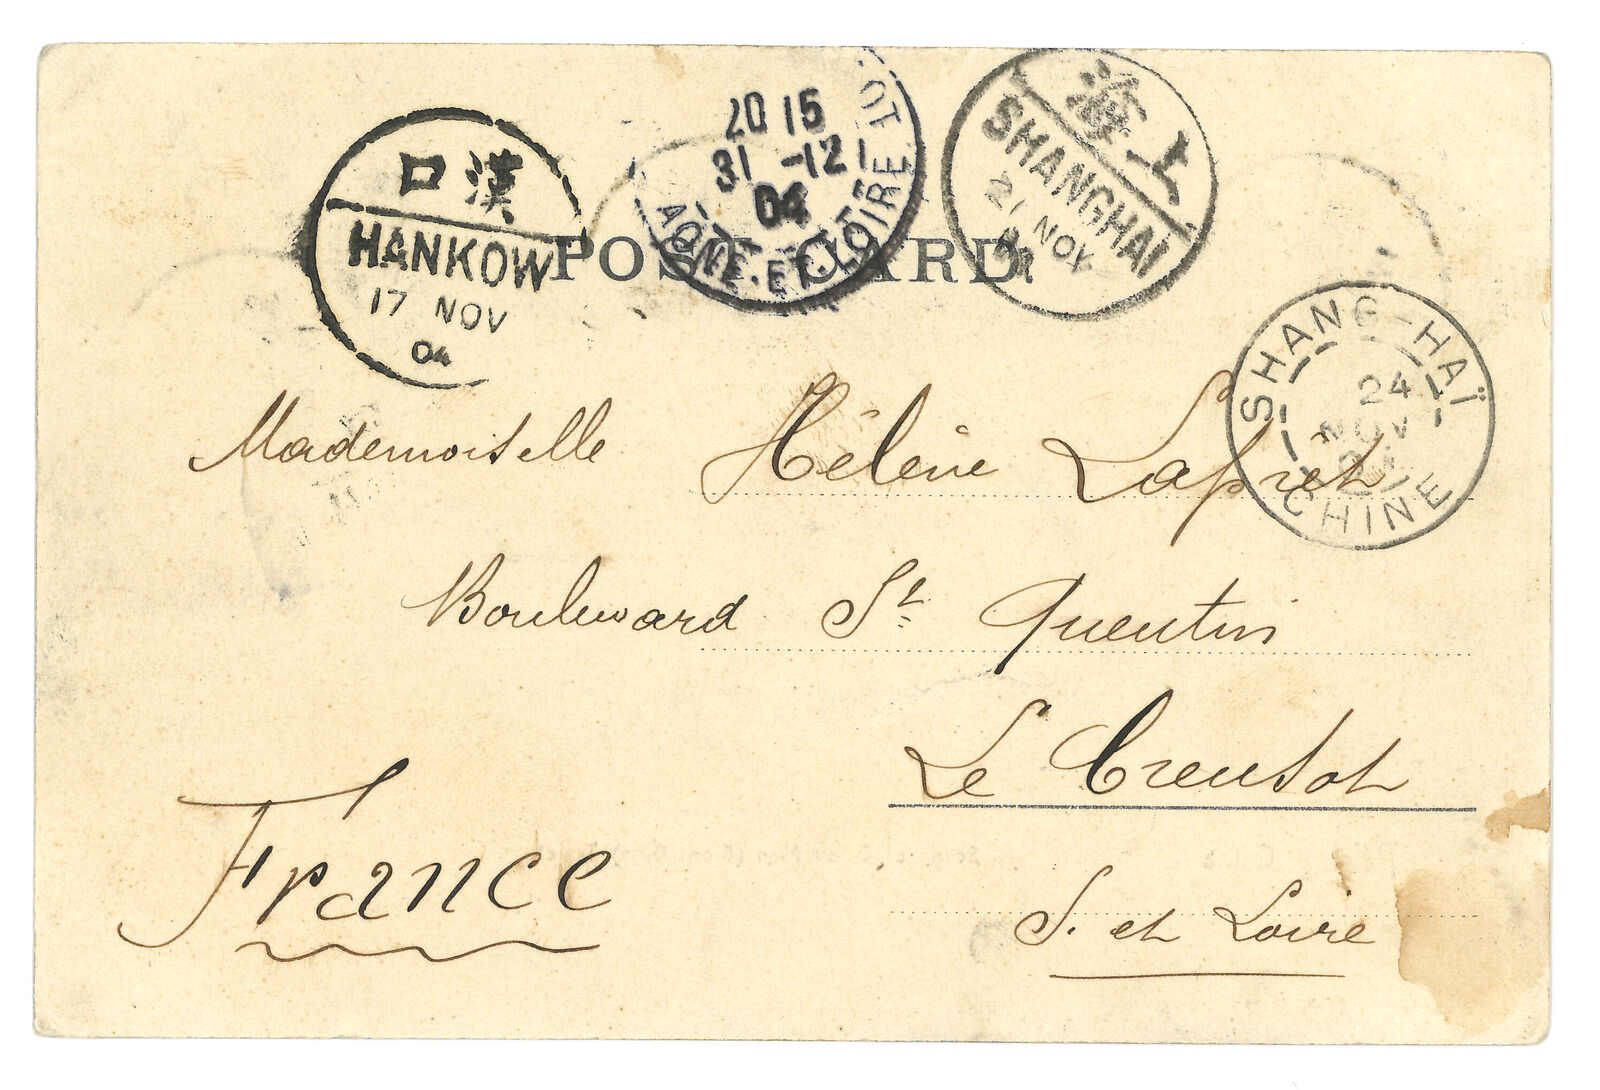 口漢
HANKOW
17 NOV
04
20 15
31 -12
04
AONE-ET-LOIRE TO.
海上
SHANGHAI
21 NOV
POST CARD.
SHANG-HAÏ
24
NOV
CHINE
Mademoiselle Hélène Lapret
Boulevard St Quentin
Le Creusot
France
S. et Loire